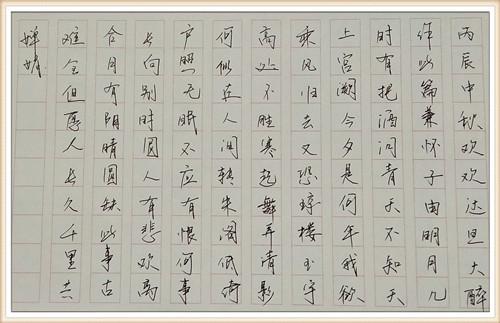 丙辰中秋欢欢达旦大醉
作此篇兼怀子由明月几
时有把酒问青天不知天
上宫阙今夕是何年我欲
乘风归去又恐琼楼玉宇
高处不胜寒起舞弄清影
何似在人间转朱阁低绮
户照无眠不应有恨何事
长向别时圆人有悲欢离
合月有阴晴圆缺此事古
难全但愿人长久千里共
婵娟